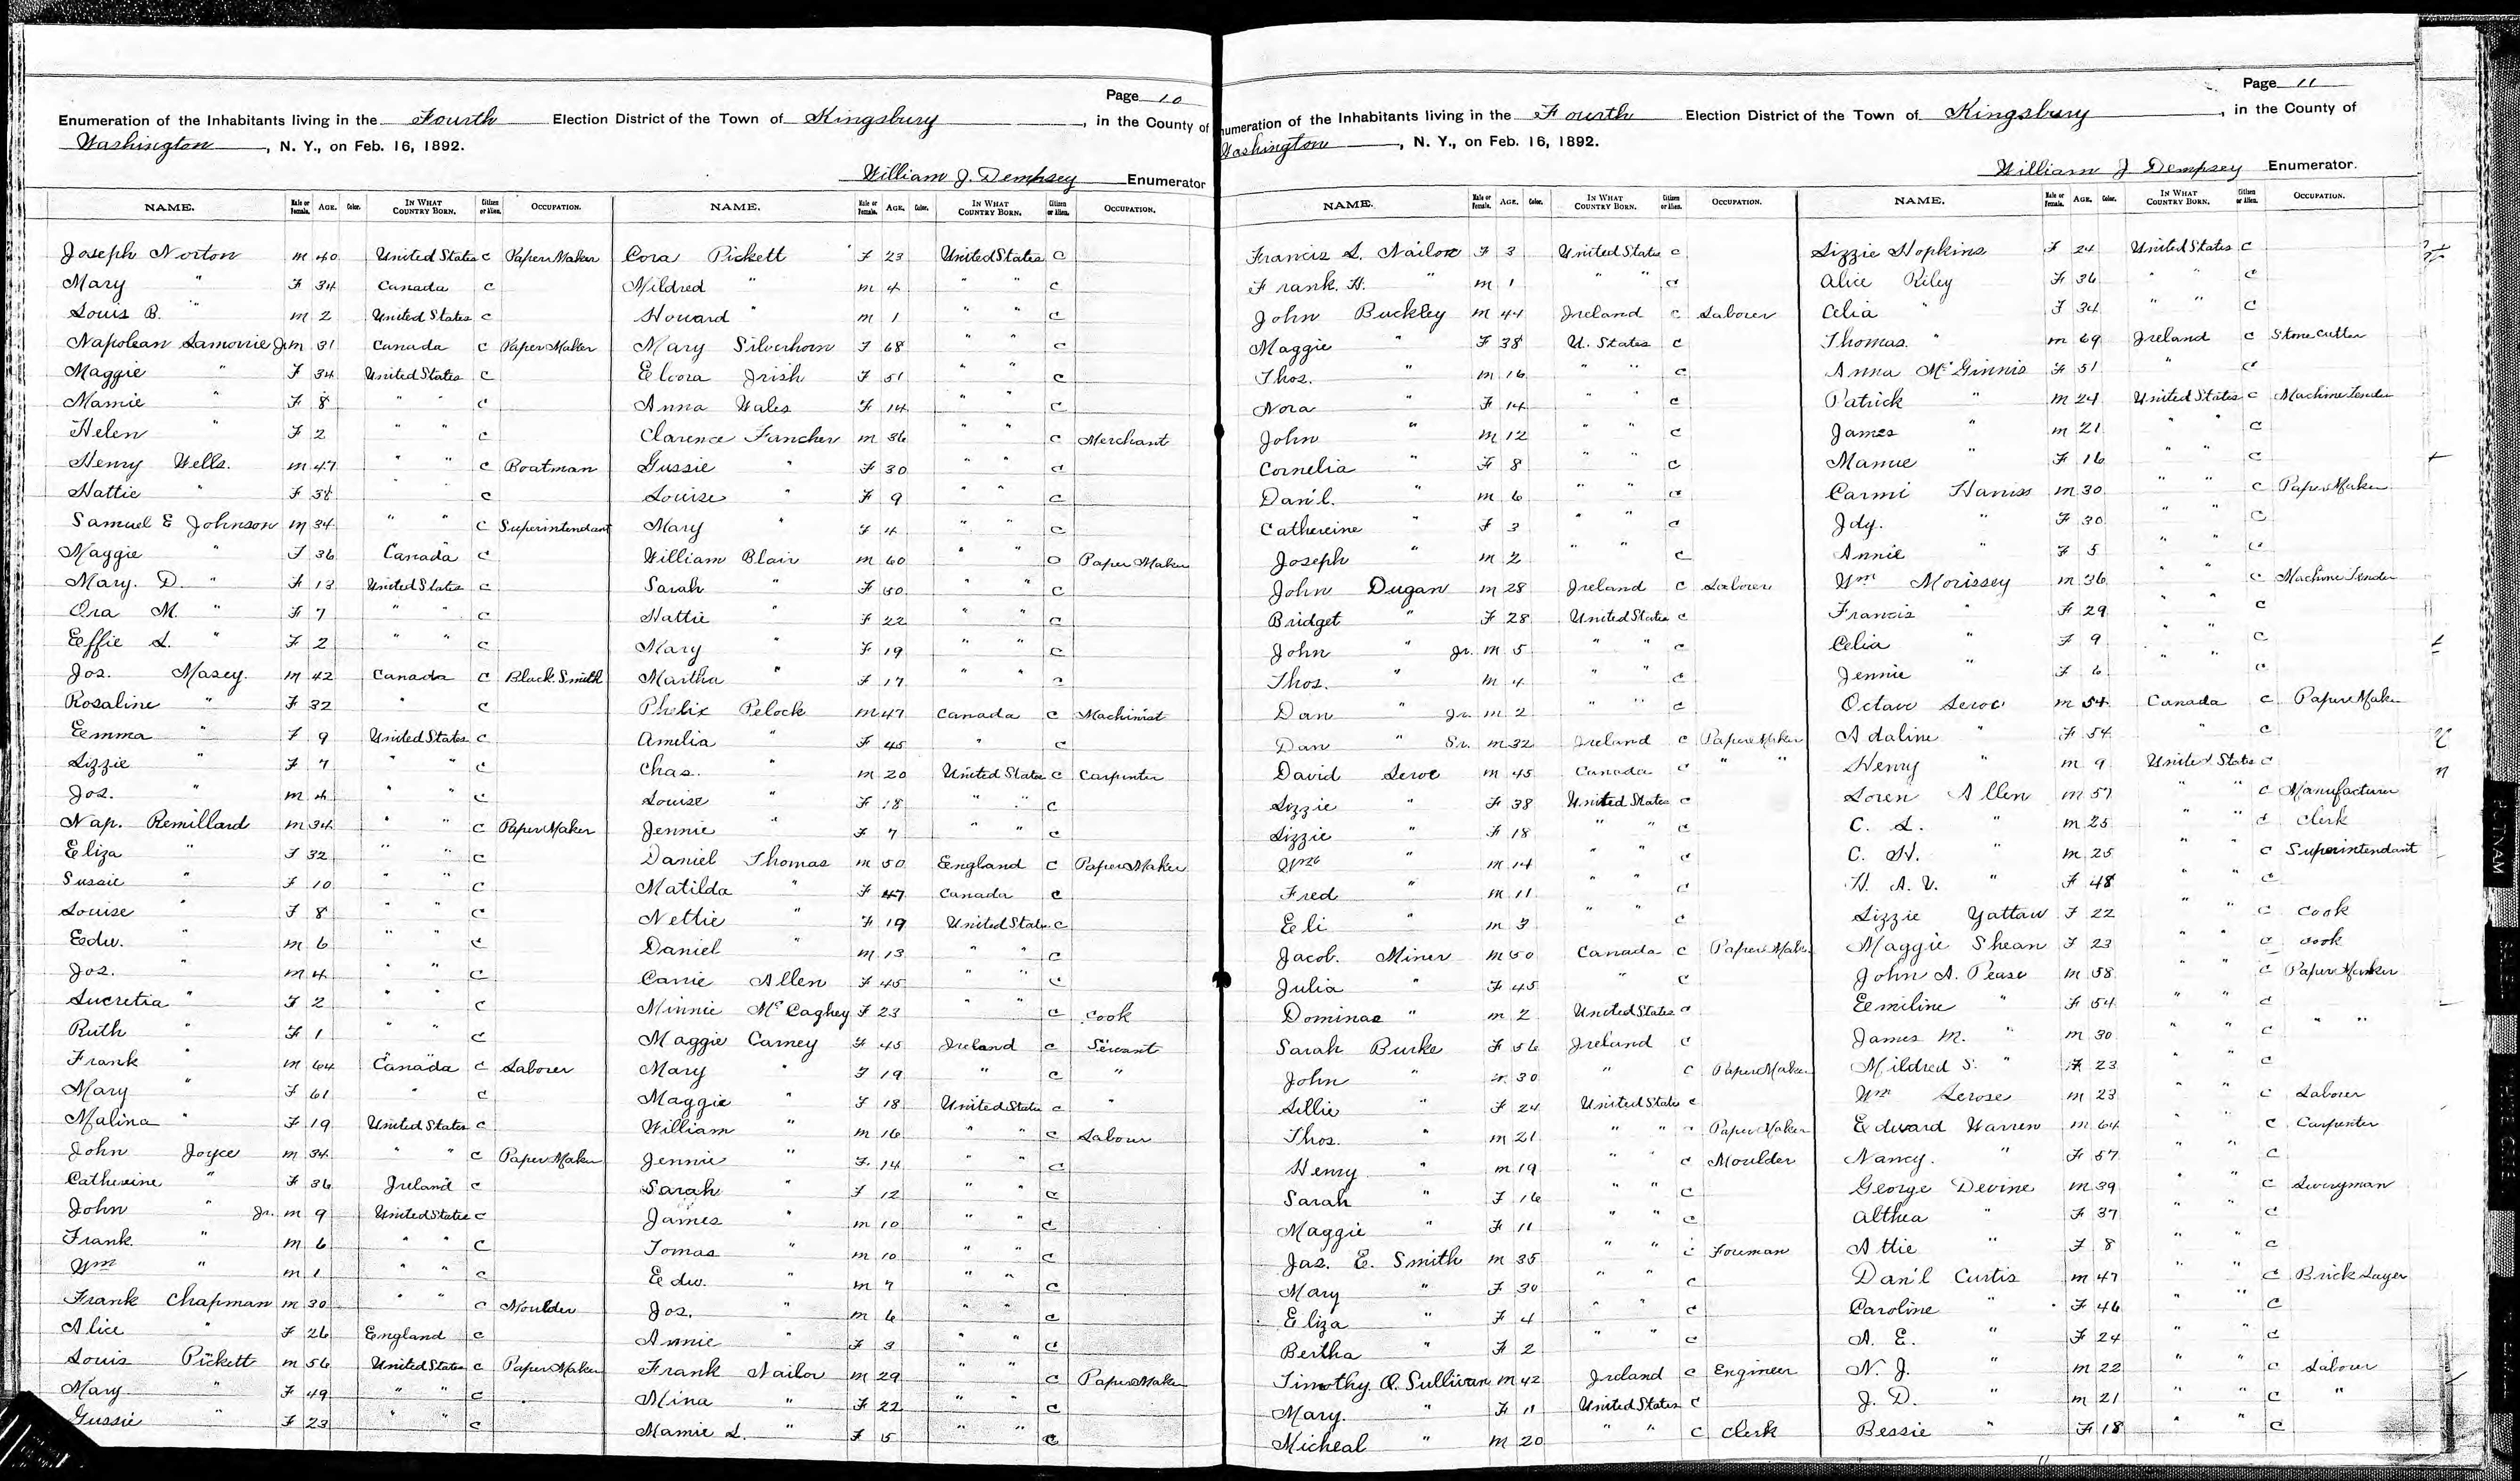 Page 10
Enumeration of the Inhabitants living in the Fourth Election District of the Town of Kingsbury, in the County of
Washington, N. Y., on Feb. 16, 1892.
William J. Dempsey Enumerator
NAME. Male or Female. AGE. Color. IN WHAT COUNTRY BORN. Citizen or Alien. OCCUPATION.
Joseph Norton m 40 United States C Paper Maker
Mary " F 34 Canada C
Louis B. " m 2 United States C
Napolean Lamorrie Jr m 31 Canada C Paper Maker
Maggie " F 34 United States C
Mamie " F 8 " " C
Helen " F 2 " " C
Henry Wells. m 47 " " C Boatman
Hattie " F 38 " C
Samuel E Johnson m 34 " " C Superintendant
Maggie " F 36 Canada C
Mary. D. " F 13 United States C
Ora M. " F 7 " " C
Effie L. " F 2 " " C
Jos. Masey. m 42 Canada C Black Smith
Rosaline " F 32 " C
Emma " F 9 United States C
Lizzie " F 7 " " C
Jos. " m 4 " " C
Nap. Remillard m 34 " " C Paper Maker
Eliza " F 32 " " C
Sussie " F 10 " " C
Louise " F 8 " " C
Edw. " m 6 " " C
Jos. " m 4 " " C
Lucretia " F 2 " " C
Ruth " F 1 " " C
Frank " m 64 Canada C Laborer
Mary " F 61 " C
Malina " F 19 United States C
John Joyce m 34 " " C Paper Maker
Catherine " F 36 Ireland C
John " Jr. m 9 United States C
Frank. " m 6 " " C
Wm " m 1 " " C
Frank Chapman m 30 " " C Moulder
Alice " F 26 England C
Louis Pickett m 56 United States C Paper Maker
Mary " F 49 " " C
Gussie " F 23 " " C
NAME. Male or Female. AGE. Color. IN WHAT COUNTRY BORN. Citizen or Alien. OCCUPATION.
Cora Pickett F 23 United States C
Mildred " m 4 " " C
Howard " m 1 " " C
Mary Silverhorn F 68 " " C
Elvora Irish F 51 " " C
Anna Wales F 14 " " C
Clarence Fancher m 36 " " C Merchant
Gussie " F 30 " " C
Louise " F 9 " " C
Mary " F 4 " " C
William Blair m 60 " " C Paper Maker
Sarah " F 50 " " C
Hattie " F 22 " " C
Mary " F 19 " " C
Martha " F 17 " " C
Phelix Pelock m 47 Canada C Machinist
Amelia " F 45 " C
Chas. " m 20 United States C Carpenter
Louise " F 18 " " C
Jennie " F 7 " " C
Daniel Thomas m 50 England C Paper Maker
Matilda " F 47 Canada C
Nettie " F 19 United States C
Daniel " m 13 " " C
Carrie Allen F 45 " " C
Minnie McCaghey F 23 " " C Cook
Maggie Carney F 45 Ireland C Servant
Mary " F 19 " C "
Maggie " F 18 United States C "
William " m 16 " " C Labour
Jennie " F 14 " " C
Sarah " F 12 " " C
James " m 10 " " C
Tomas " m 10 " " C
Edw. " m 7 " " C
Jos. " m 6 " " C
Annie " F 3 " " C
Frank Nailor m 29 " " C Paper Maker
Mina " F 22 " " C
Mamie L. " F 5 " " C
Page 11
Enumeration of the Inhabitants living in the Fourth Election District of the Town of Kingsbury, in the County of
Washington, N. Y., on Feb. 16, 1892.
William J. Dempsey Enumerator.
NAME. Male or Female. AGE. Color. IN WHAT COUNTRY BORN. Citizen or Alien. OCCUPATION.
Francis L. Nailor F 3 United States C
Frank. H. " m 1 " " C
John Buckley m 44 Ireland C Laborer
Maggie " F 38 U. States C
Thos. " m 16 " " C
Nora " F 14 " " C
John " m 12 " " C
Cornelia " F 8 " " C
Dan'l. " m 6 " " C
Cathereine " F 3 " " C
Joseph " m 2 " " C
John Dugan m 28 Ireland C Laborer
Bridget " F 28 United States C
John " Jr. m 5 " " C
Thos. " m 4 " " C
Dan " Jr. m 2 " " C
Dan " Sr. m 32 Ireland C Paper Maker
David Leroe m 45 Canada C " "
Lizzie " F 38 United States C
Lizzie " F 18 " " C
Wm " m 14 " " C
Fred " m 11 " " C
Eli " m 3 " " C
Jacob. Miner m 50 Canada C Paper Maker
Julia " F 45 " C
Dominac " m 2 United States C
Sarah Burke F 56 Ireland C
John " m 30 " C Paper Maker
Lillie " F 24 United States C
Thos. " m 21 " " " Paper Maker
Henry " m 19 " " C Moulder
Sarah " F 16 " " C
Maggie " F 11 " " C
Jas. E. Smith m 35 " " C Foreman
Mary " F 30 " " C
Eliza " F 4 " " C
Bertha " F 2 " " C
Timothy O. Sullivan m 42 Ireland C Engineer
Mary. " F 11 United States C
Micheal " m 20 " " C Clerk
NAME. Male or Female. AGE. Color. IN WHAT COUNTRY BORN. Citizen or Alien. OCCUPATION.
Lizzie Hopkins F 24 United States C
Alice Riley F 36 " " C
Celia " F 34 " " C
Thomas. " m 69 Ireland C Stone Cutter
Anna McGinnis F 51 " C
Patrick " m 24 United States C Machine Tender
James " m 21 " " C
Mamie " F 16 " " C
Carmi Haniss m 30 " " C Paper Maker
Idy. " F 30 " " C
Annie " F 5 " " C
Wm Morissey m 36 " " C Machine Tender
Francis " F 29 " " C
Celia " F 9 " " C
Jennie " F 6 " " C
Octave Leroe m 54 Canada C Paper Maker
Adaline " F 54 " C
Henry " m 9 United States C
Loren Allen m 57 " " C Manufacturer
C. L. " m 25 " " C Clerk
C. H. " m 25 " " C Superintendant
H. A. V. " F 48 " " C
Lizzie Yattaw F 22 " " C Cook
Maggie Shean F 23 " " C Cook
John A. Pease m 58 " " C Paper Maker
Emiline " F 54 " " C
James M. " m 30 " " C " "
Mildred S. " F 23 " " C
Wm Lerose m 23 " " C Laborer
Edward Warren m 64 " " C Carpenter
Nancy. " F 57 " " C
George Devine m 39 " " C Liveryman
Althea " F 37 " " C
Attie " F 8 " " C
Dan'l Curtis m 47 " " C Brick Layer
Caroline " F 46 " " C
A. E. " F 24 " " C
N. J. " m 22 " " C Labour
J. D. " m 21 " " C "
Bessie " F 18 " " C
PUTNAM